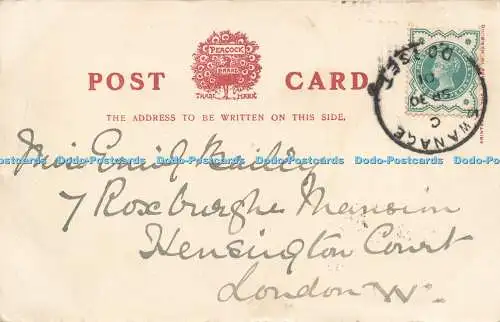 POST CARD
PEACOCK
BRAND
TRADE MARK
THE ADDRESS TO BE WRITTEN ON THIS SIDE.
SWANAGE
C
SP 30
01
Dodo-Postcards Dodo-Postcards Dodo-Postcards Dodo-Postcards Dodo-Postcards
Miss Enid Bailey
7 Roxburghe Mansion
Kensington Court
London W.